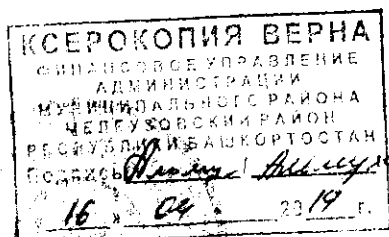 КСЕРОКОПИЯ ВЕРНА
ФИНАНСОВОЕ УПРАВЛЕНИЕ
АДМИНИСТРАЦИИ
МУНИЦИПАЛЬНОГО РАЙОНА
МЕЛЕУЗОВСКИЙ РАЙОН
РЕСПУБЛИКИ БАШКОРТОСТАН
Подпись /
« 16 » 04 2019 г.